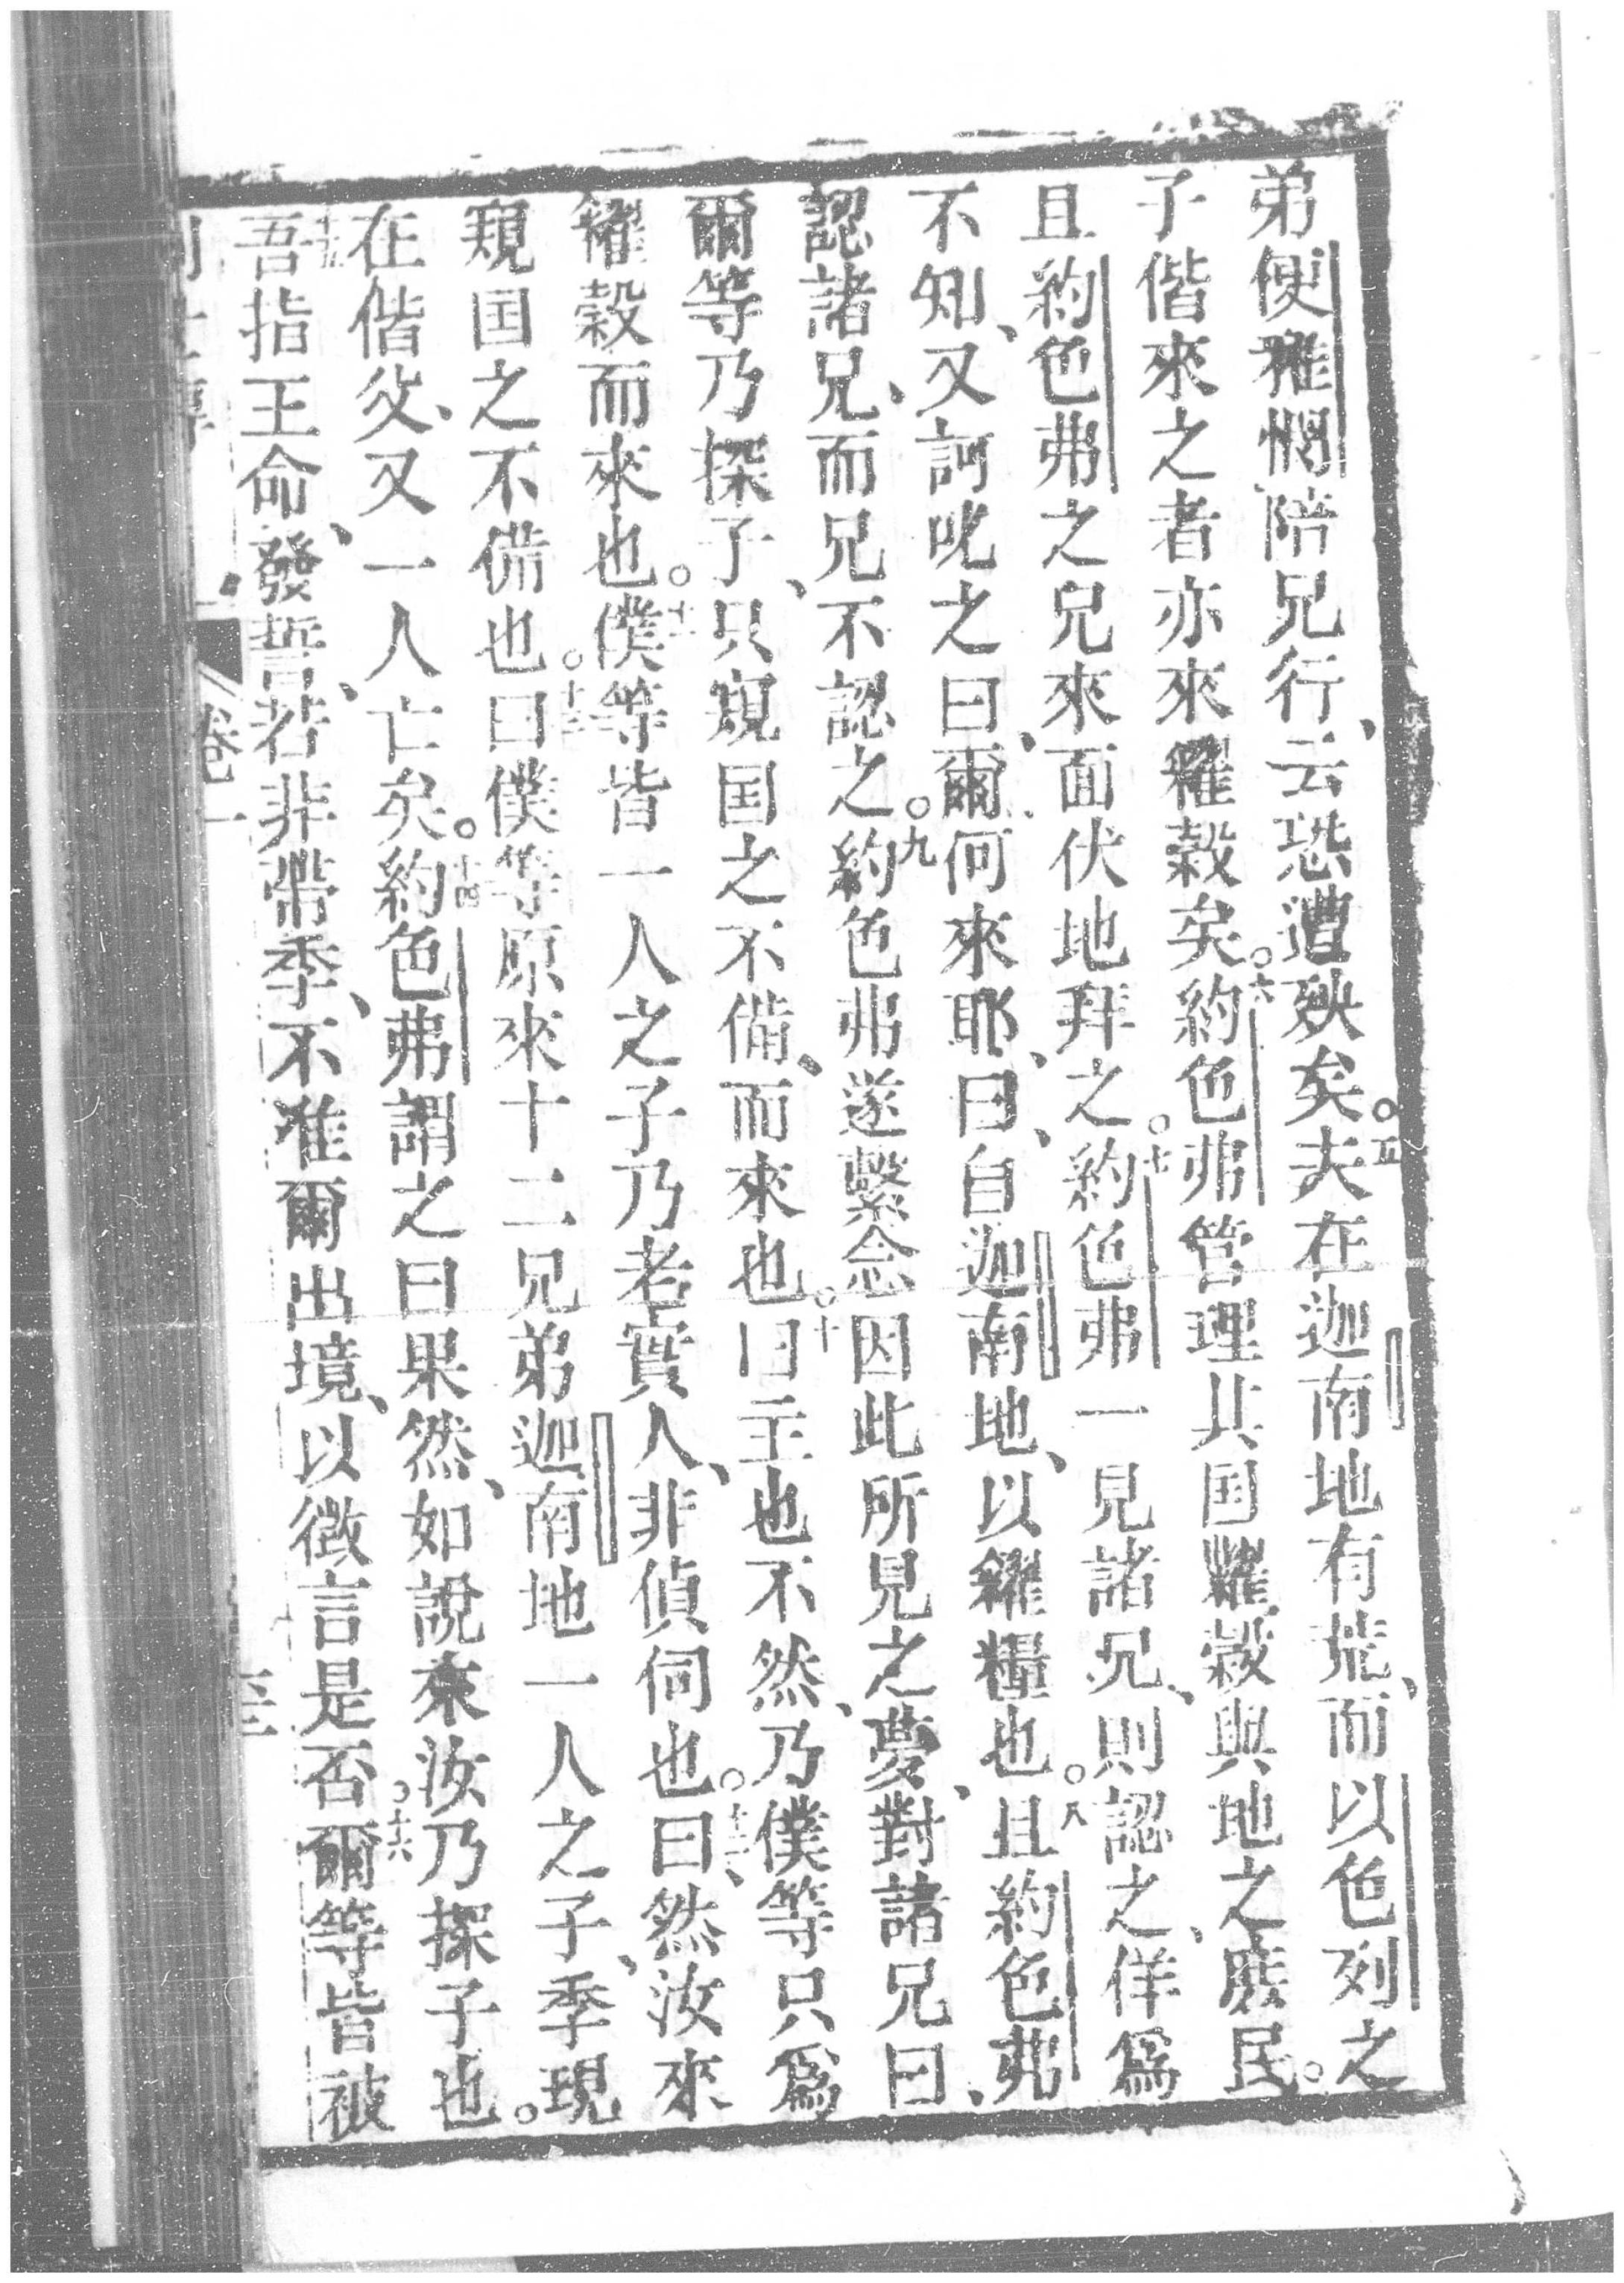 弟便雅憫陪兄行、云恐遭殃矣。五夫在迦南地有荒、而以色列之
子偕來之者亦來糴穀矣。六約色弗管理其国糶穀與地之庶民。
且約色弗之兄來面伏地拜之。七約色弗一見諸兄、則認之、佯爲
不知、又訶叱之曰、爾何來耶、曰、自迦南地、以糴糧也。八且約色弗
認諸兄、而兄不認之。九約色弗遂繫念因此所見之夢、對諸兄曰、
爾等乃探子、只窺国之不備、而來也。十曰主也不然、乃僕等只爲
糴穀而來也。十一僕等皆一人之子乃老實人、非偵伺也。十二曰然汝來
窺国之不備也。十三曰僕等原來十二兄弟迦南地一人之子、季現
在偕父、又一人亡矣。十四約色弗謂之曰果然、如說來汝乃探子也。
十五吾指王命、發誓、若非帶季、不准爾出境、以徵言是否。十六爾等皆被
卷一